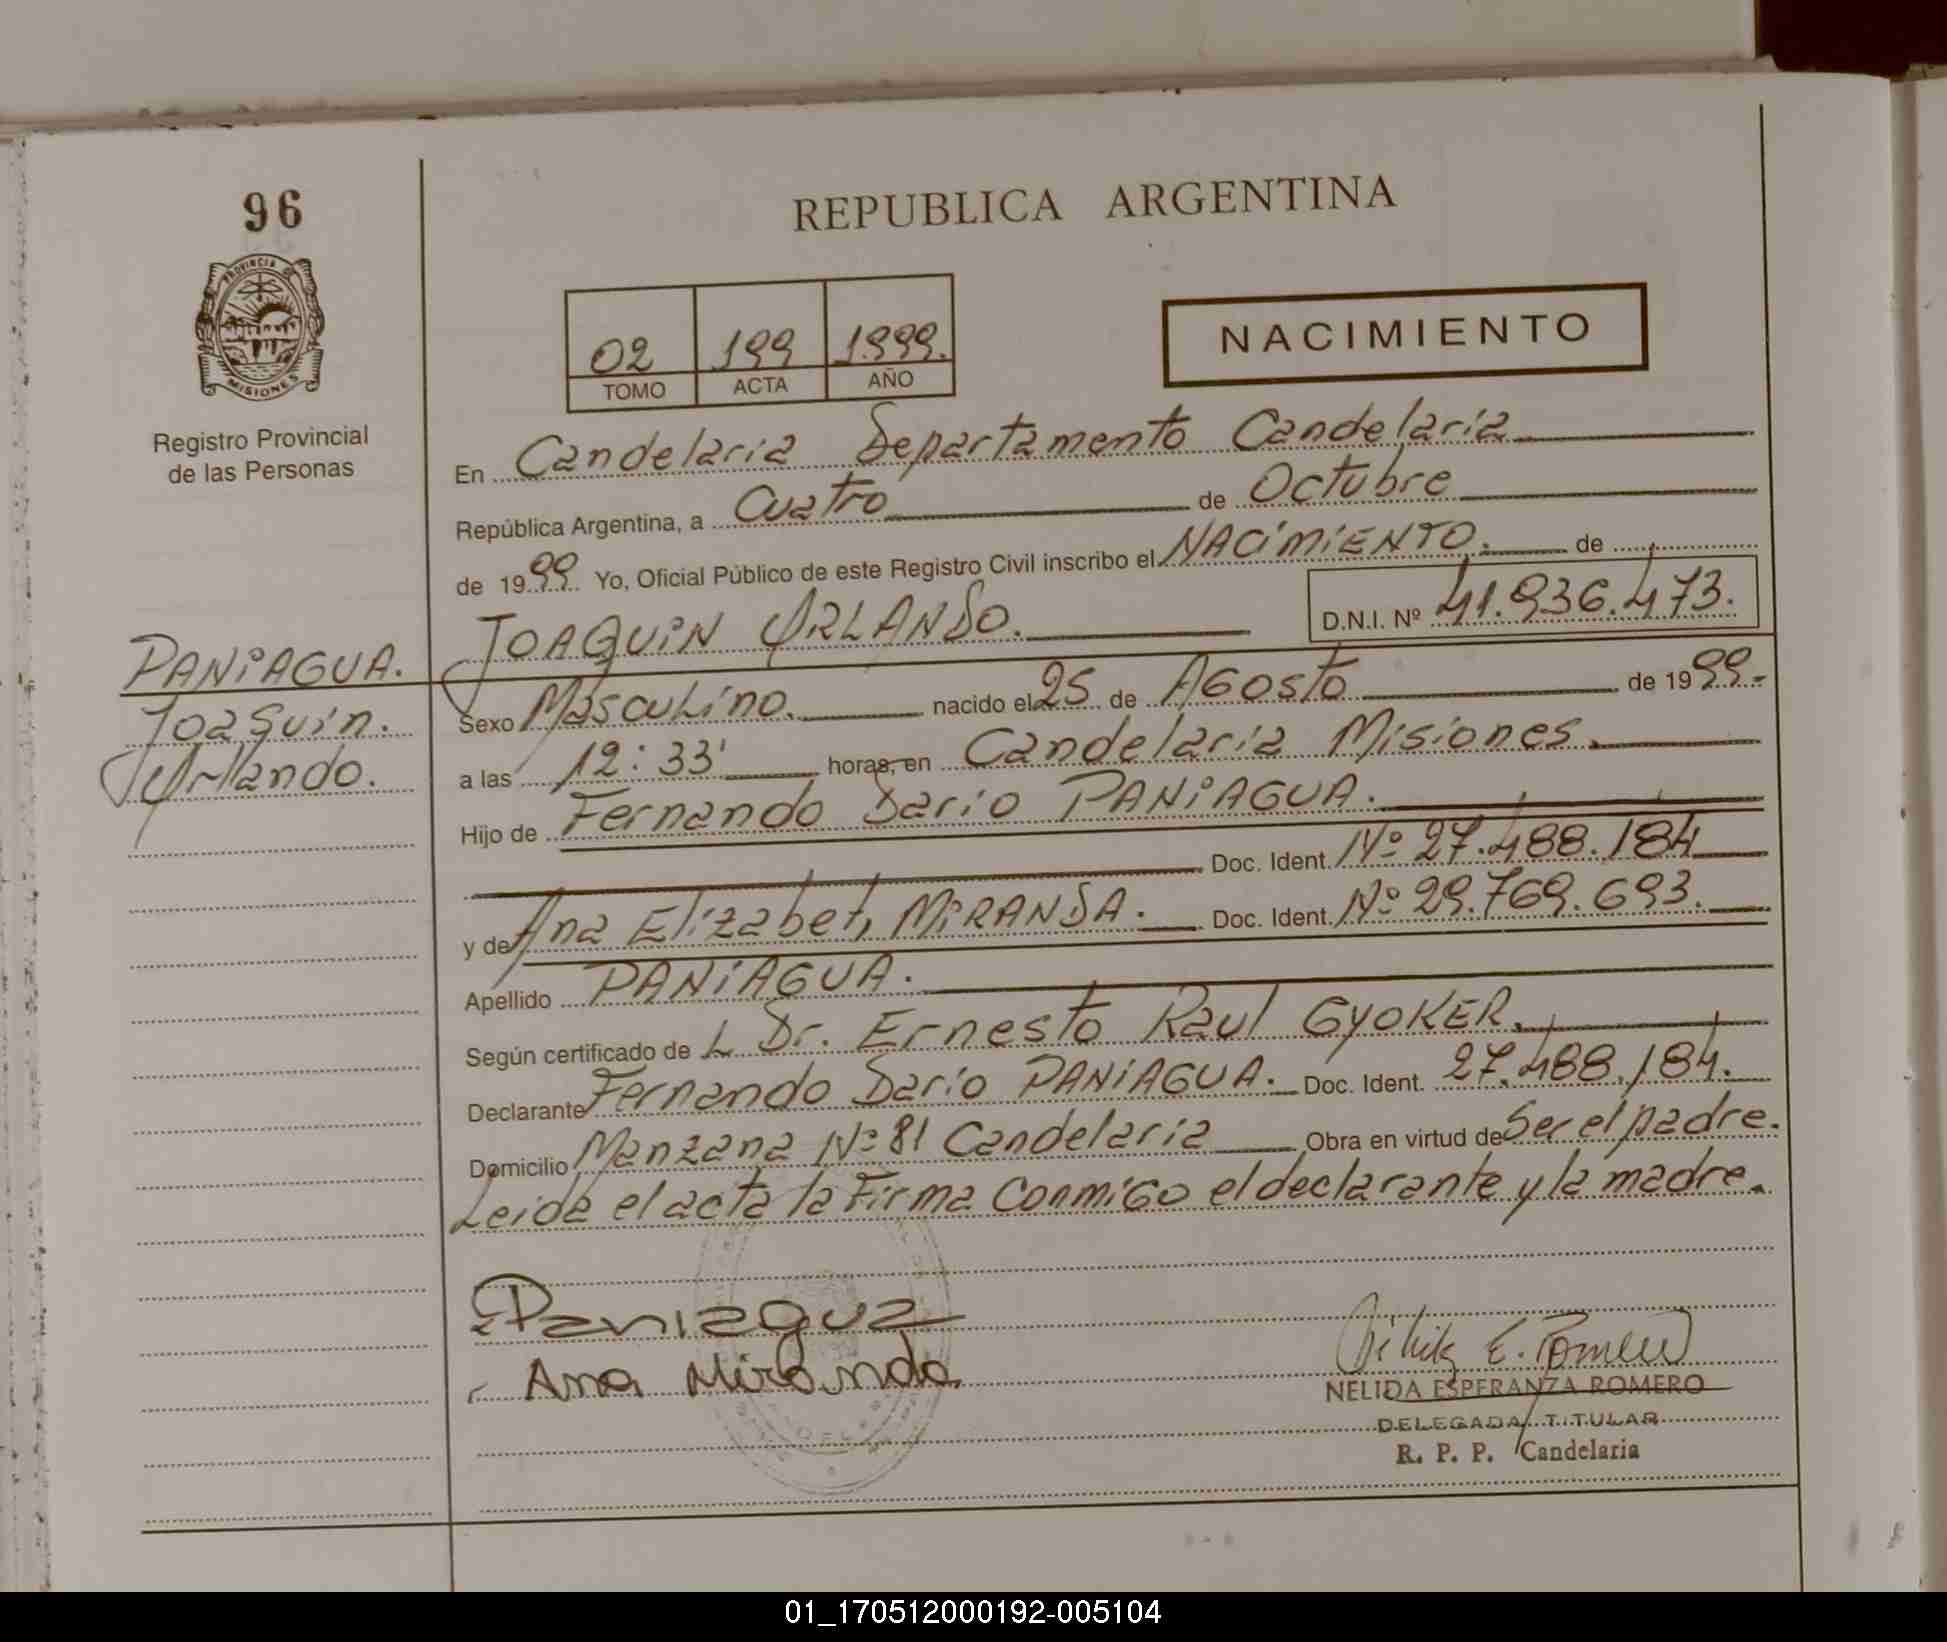 96
PROVINCIA DE
MISIONES
Registro Provincial
de las Personas
REPUBLICA ARGENTINA
02 199 1999.
TOMO ACTA AÑO
NACIMIENTO
En Candelaria Departamento Candelaria
República Argentina, a Cuatro de Octubre
de 1999. Yo, Oficial Público de este Registro Civil inscribo el NACIMIENTO. de
JOAQUIN ORLANDO. D.N.I. Nº 41.936.473.
PANIAGUA.
Joaquin.
Orlando.
Sexo Masculino. nacido el 25 de AGosto de 1999.-
a las 12:33' horas, en Candelaria Misiones.
Hijo de Fernando Dario PANIAGUA.
Doc. Ident. Nº 27.488.184
y de Ana Elizabet, MIRANDA. Doc. Ident. Nº 29.769.693.
Apellido PANIAGUA.
Según certificado de L Dr. Ernesto Raul GYOKER.
Declarante Fernando Dario PANIAGUA. Doc. Ident. 27.488.184.
Domicilio Manzana Nº 81 Candelaria Obra en virtud de Ser el padre.
Leida el acta la Firma ConmiGo el declarante y la madre.
Paniagua
Ana Miranda
E. Romero
NELIDA ESPERANZA ROMERO
DELEGADA TITULAR
R. P. P. Candelaria
01_170512000192-005104